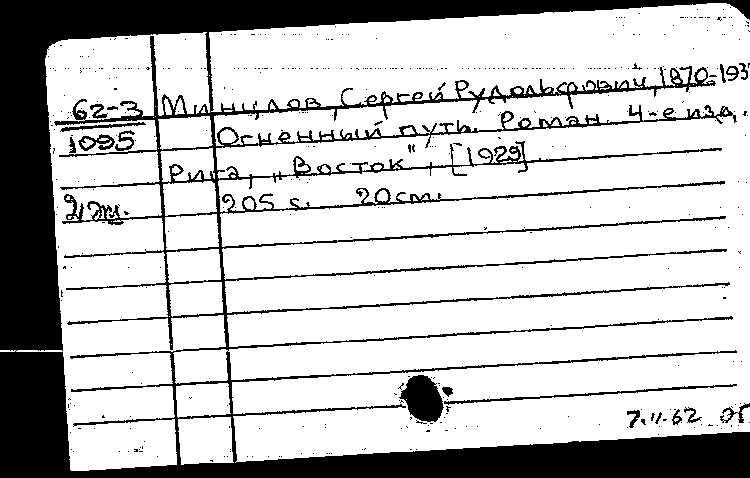 62-3 Минцлов, Сергей Рудольфович, 1870-193
1095 Огненный путь. Роман. 4-е изд.
Рига, „Восток", [1929]
205 s. 20 cm.
7.II.62